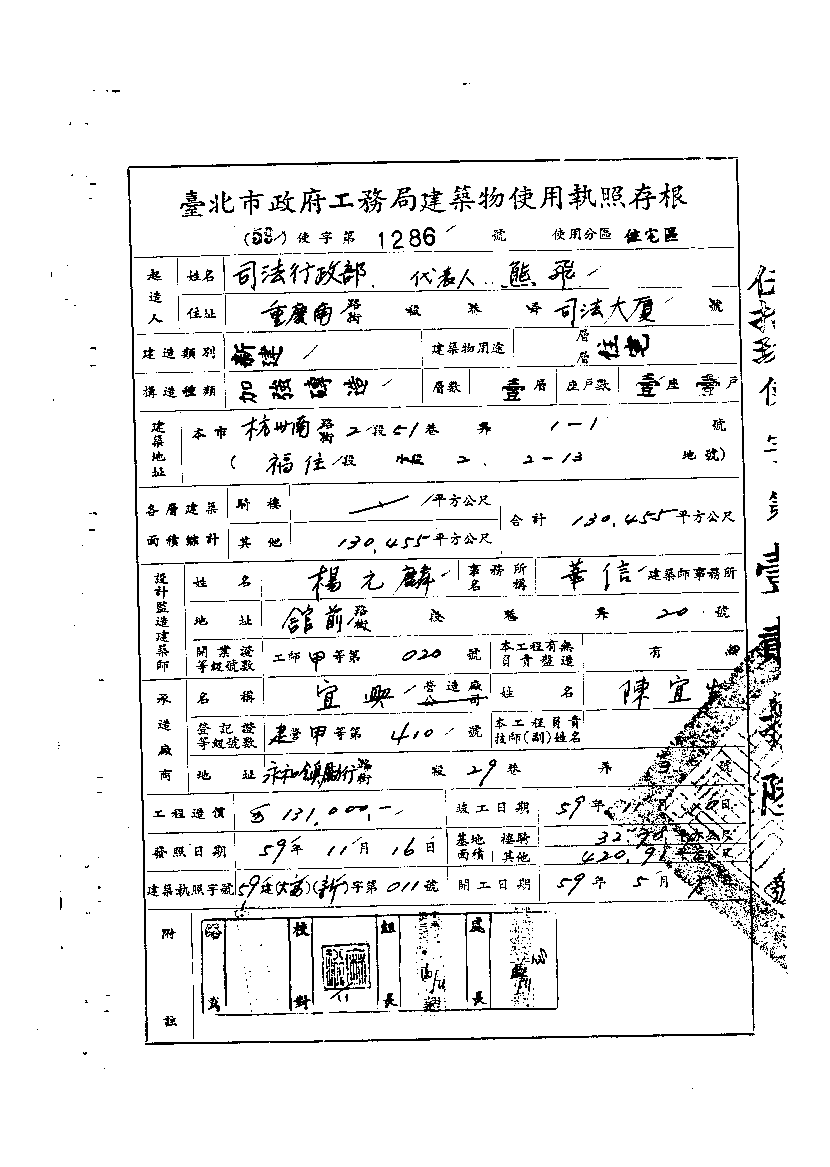 臺北市政府工務局建築物使用執照存根
(59)使字第 1286 號 使用分區 住宅區
起造人 姓名 司法行政部 代表人 熊飛
住址 重慶南路街 段 巷 弄 司法大厦 號
建造類別 新建 建築物用途 層層 住宅
構造種類 加強磚造 層數 壹層 座戶數 壹座壹戶
建築地址 本市 杭州南路街 2段51巷 弄 1-1 號
(福住段 小段 2、2-13 地號)
各層建築面積總計 騎樓 平方公尺 合計 130.455平方公尺
其他 130.455平方公尺
設計監造建築師 姓名 楊元麟 事務所名稱 華信建築師事務所
地址 館前路街 段 巷 弄 20 號
開業證等級號數 工師甲等第 020 號 本工程有無負責監造 有
承造廠商 名稱 宜興 營造廠公司 姓名 陳宜
登記證等級號數 建營甲等第 410 號 本工程負責技師(副)姓名
地址 永和鎮勵行路街 段 29巷 弄 號
工程造價 131,000,- 竣工日期 59年11月 日
發照日期 59年11月16日 基地面積 樓騎 公尺
其他 公尺
建築執照字號 59建(大安)(新)字第011號 開工日期 59年5月
附註 校對 組長 處長